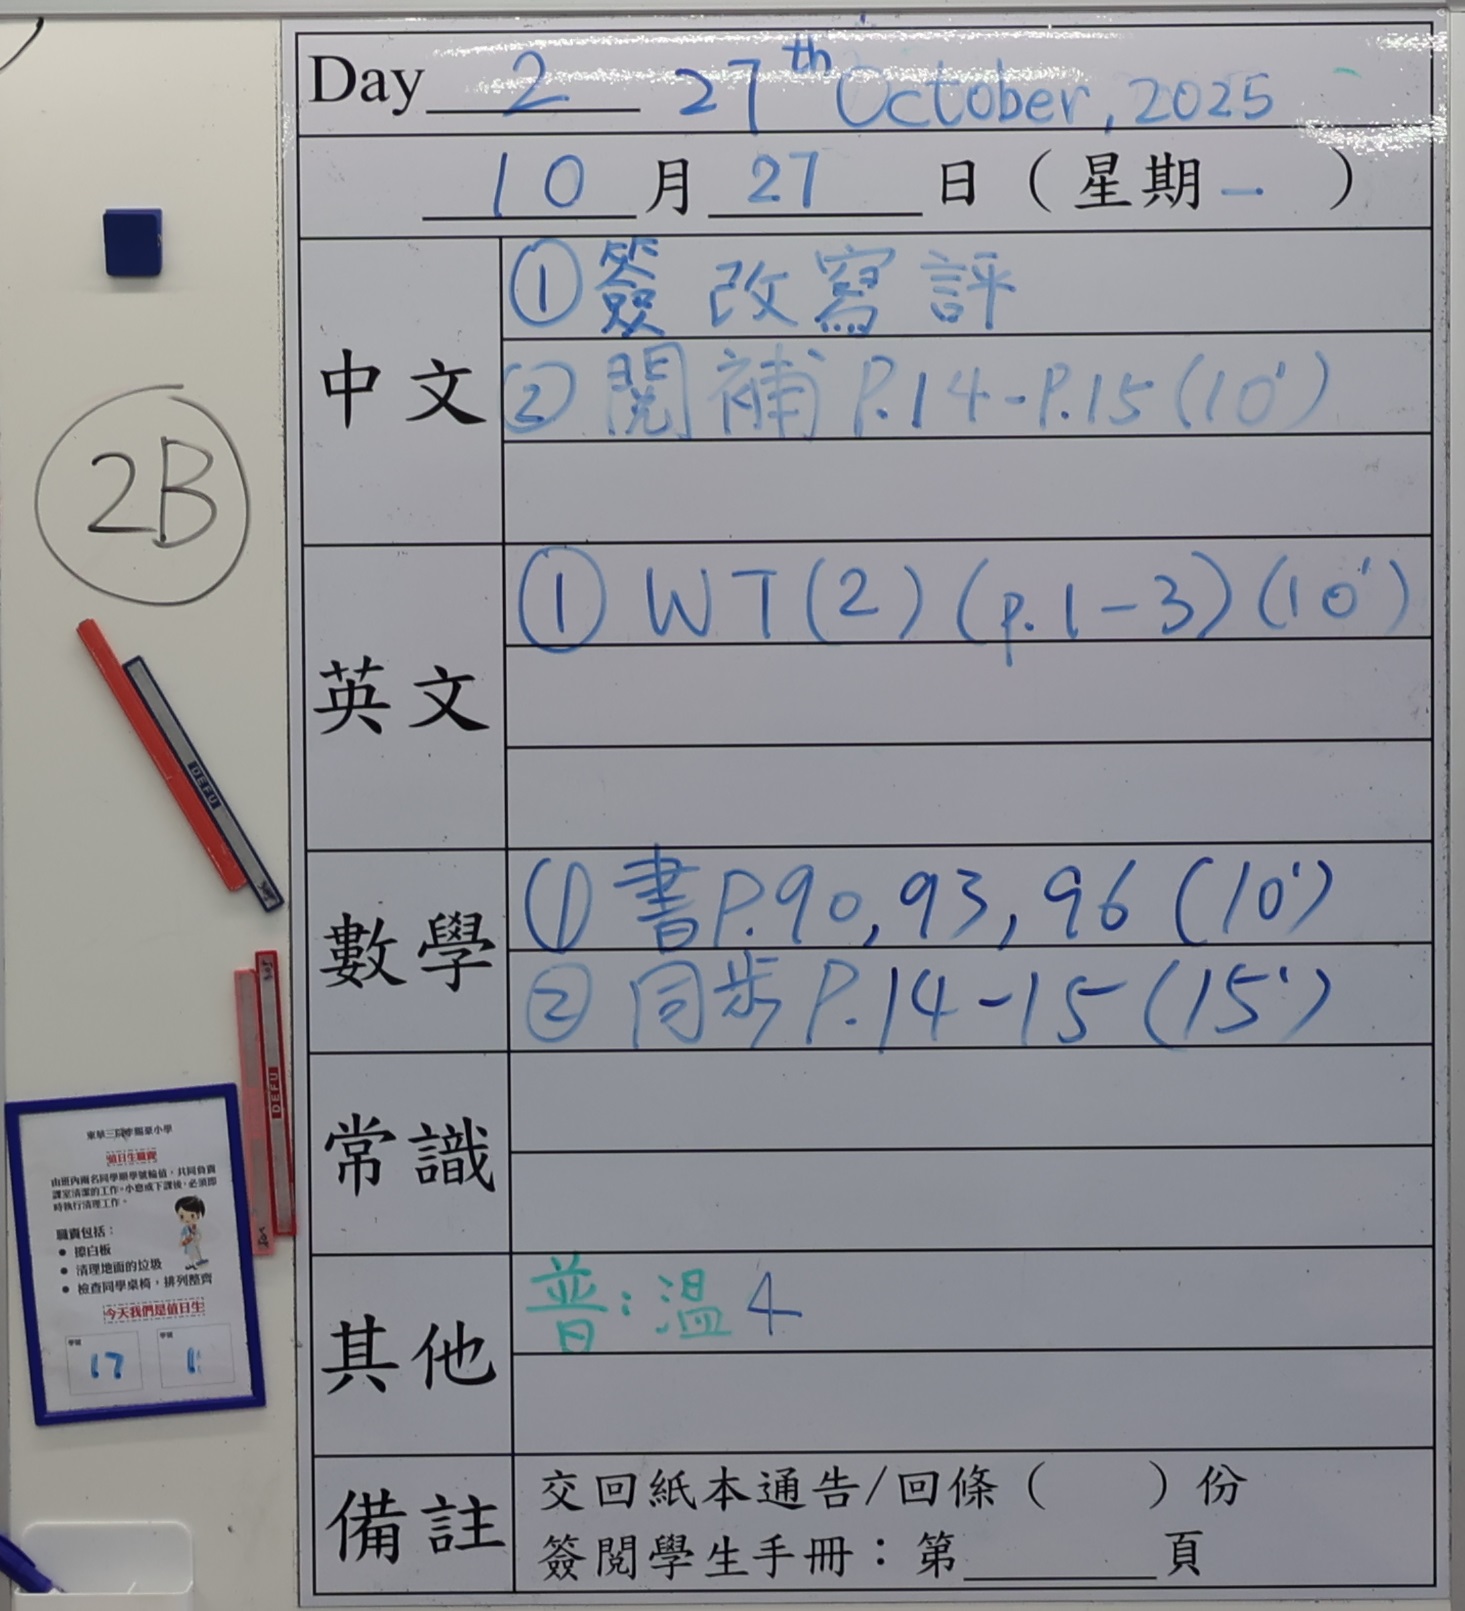 Day 2 27th October, 2025
10 月 27 日 ( 星期一 )
中文
①簽 改寫評
②閱補 P.14-P.15 (10')
2B
英文
① WT(2) (p.1-3) (10')
DEFU
數學
① 書P.90, 93, 96 (10')
② 同步P.14-15 (15')
DEFU
常識
東華三院李賜豪小學
值日生職責
由班內兩名同學順學號輪值，共同負責
課室清潔的工作。小息或下課後，必須即
時執行清理工作。
職責包括：
● 擦白板
● 清理地面的垃圾
● 檢查同學桌椅，排列整齊
今天我們是值日生
學號 學號
17
其他
普：溫4
備註
交回紙本通告/回條（ ）份
簽閱學生手冊：第 頁